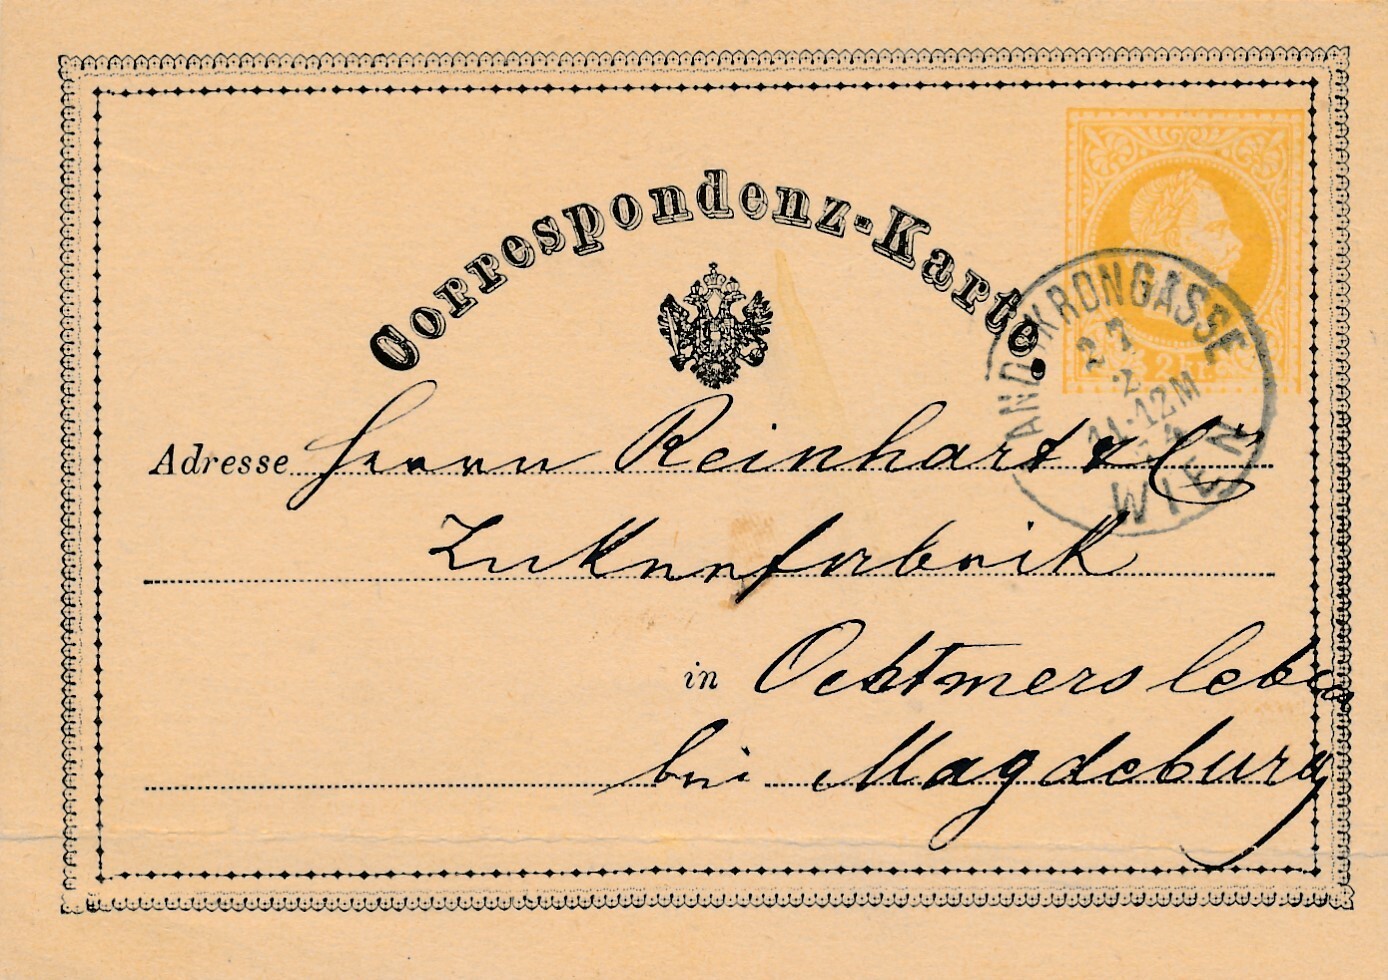 Correspondenz-Karte.
2 Kr.
LANDSKRONGASSE
27
2
11·12M
WIEN
Adresse Herrn Reinhart & Co
Zukrrfabrik
in Ochtmersleben
bei Magdeburg